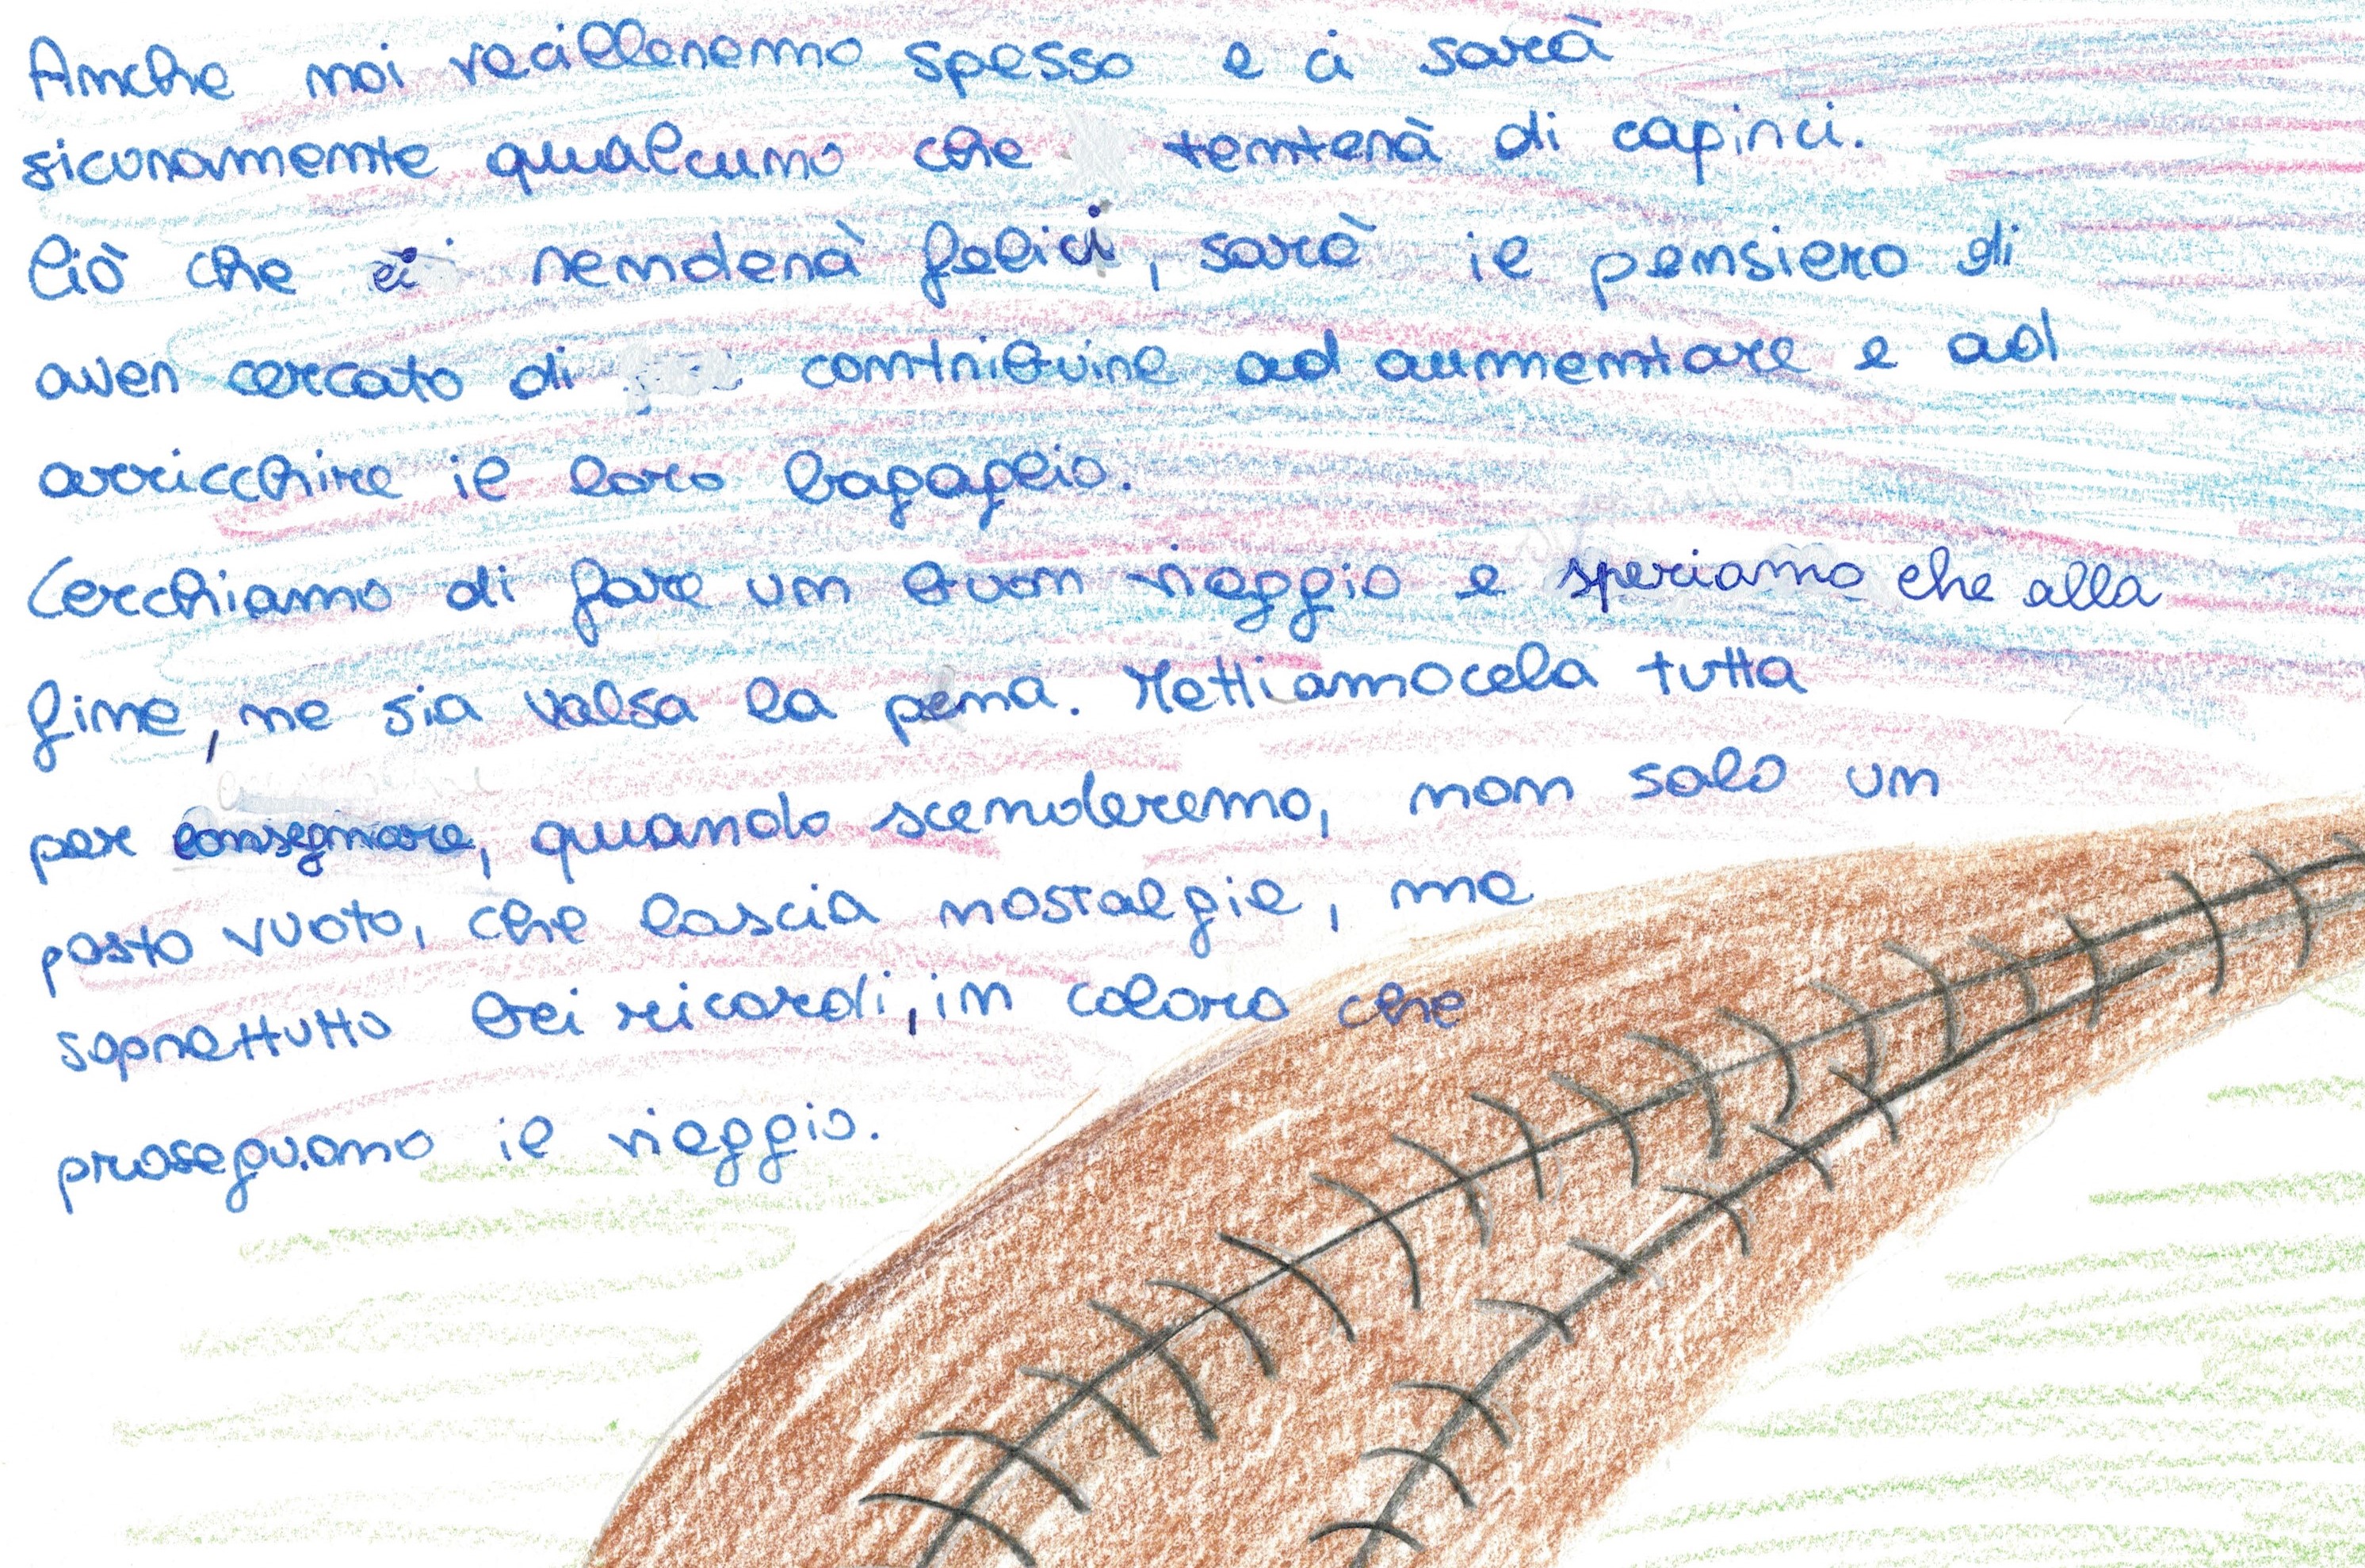 Anche noi vacilleremo spesso e ci sarà
sicuramente qualcuno che tenterà di capirci.
Ciò che ci renderà felici, sarà il pensiero di
aver cercato di contribuire ad aumentare e ad
arricchire il loro bagaglio.
Cerchiamo di fare un buon viaggio e speriamo che alla
fine, ne sia valsa la pena. Mettiamocela tutta
per consegnare, quando scenderemo, non solo un
posto vuoto, che lascia nostalgie, ma
soprattutto bei ricordi, in coloro che
proseguono il viaggio.